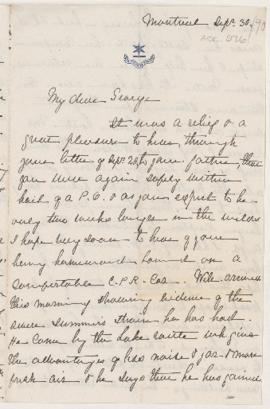 Montreal Sept. 30/90
My dear George
It was a relief & a
great pleasure to hear through
your letter of Sept. 26, to your father, that
you were again safely within
hail of a P.O. & as you expect to be
only two weeks longer in the wilds
I hope very soon to hear of your
being homeward bound on a
comfortable C.P.R. Car. Will arrived
this morning showing evidence of the
summer's strain he has had.
He came by the Lake route wh. gives
the advantages of less noise & jar & more
fresh air & he says that he has gained